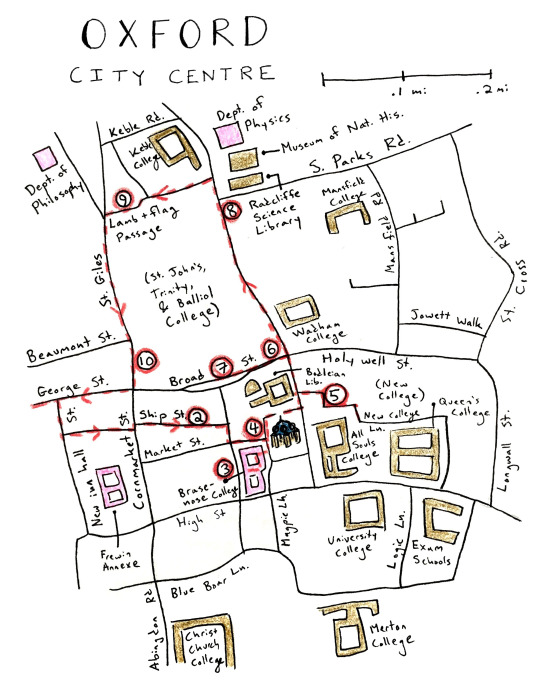 OXFORD
CITY CENTRE
.1 mi
.2 mi
Keble Rd.
Dept. of
Physics
Museum of Nat. His.
Keble
College
S. Parks Rd.
Dept. of
Philosophy
9
8
Radcliffe
Science
Library
Mansfield
College
Lamb + flag
Passage
Mansfield Rd
St. Giles
(St. John's,
Trinity,
& Balliol
College)
St. Cross Rd.
Wadham
College
Jowett Walk
Beaumont St.
10
7
6
Broad St.
Holywell St.
George St.
Bodleian
Lib.
5
(New
College)
Queen's
College
St.
St.
Ship St.
2
4
New College
Ln.
Market St.
All
Souls
College
Longwall St.
New inn hall
Cornmarket
3
Brase-
nose College
High St
Magpie Ln.
University
College
Logic Ln.
Exam
Schools
Frewin
Annexe
Blue Boar Ln.
Abingdon Rd
Christ
Church
College
Merton
College